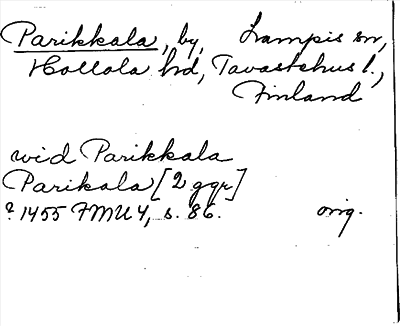 Parikkala, by, Lampis sn,
Hollola hd, Tavastehus l.,
Finland
vid Parikkala
Parikala [2 ggr]
? 1455 FMU 4, s. 86. orig.